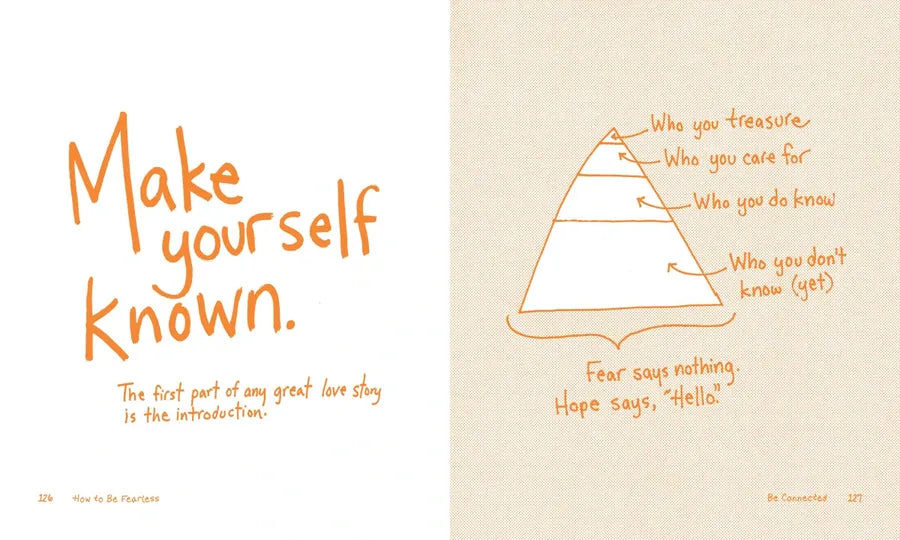 Make
yourself
known.
The first part of any great love story
is the introduction.
126 How to Be Fearless
Who you treasure
Who you care for
Who you do know
Who you don't
know (yet)
Fear says nothing.
Hope says, "Hello."
Be Connected 127